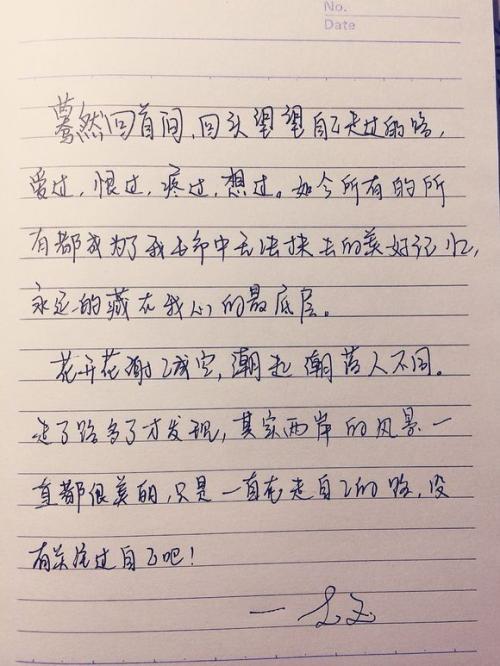 No.
Date
蓦然回首间,回头望望自己走过的路,
爱过,恨过,疼过,想过。如今所有的所
有都成为了我生命中无法抹去的美好记忆,
永远的藏在我心的最底层。
花开花谢已成空,潮起潮落人不同。
走了路多了才发现,其实两岸的风景一
直都很美丽,只是一直在走自己的路,没
有关注过自己吧!